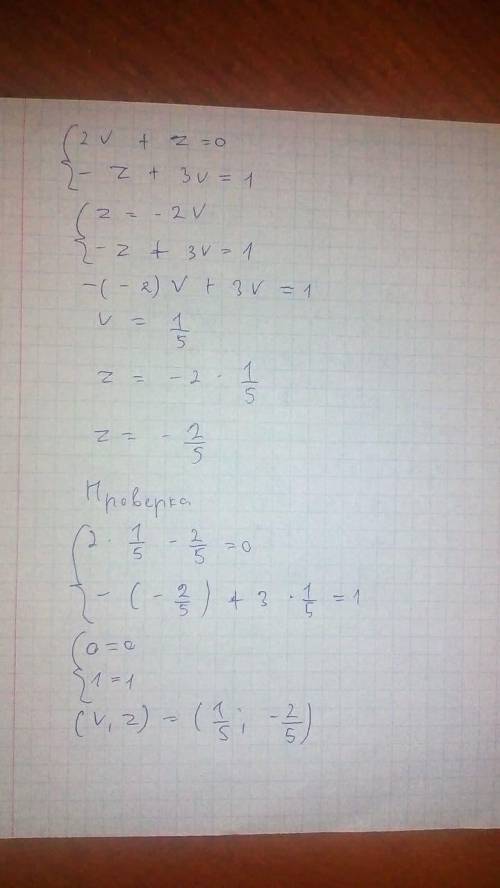 {2v + z = 0
{- z + 3v = 1
{z = - 2v
{- z + 3v = 1
-(-2)v + 3v = 1
v = 1/5
z = -2 · 1/5
z = - 2/5
Проверка
{2 · 1/5 - 2/5 = 0
{- (- 2/5) + 3 · 1/5 = 1
{0 = 0
{1 = 1
(v, z) = (1/5; -2/5)